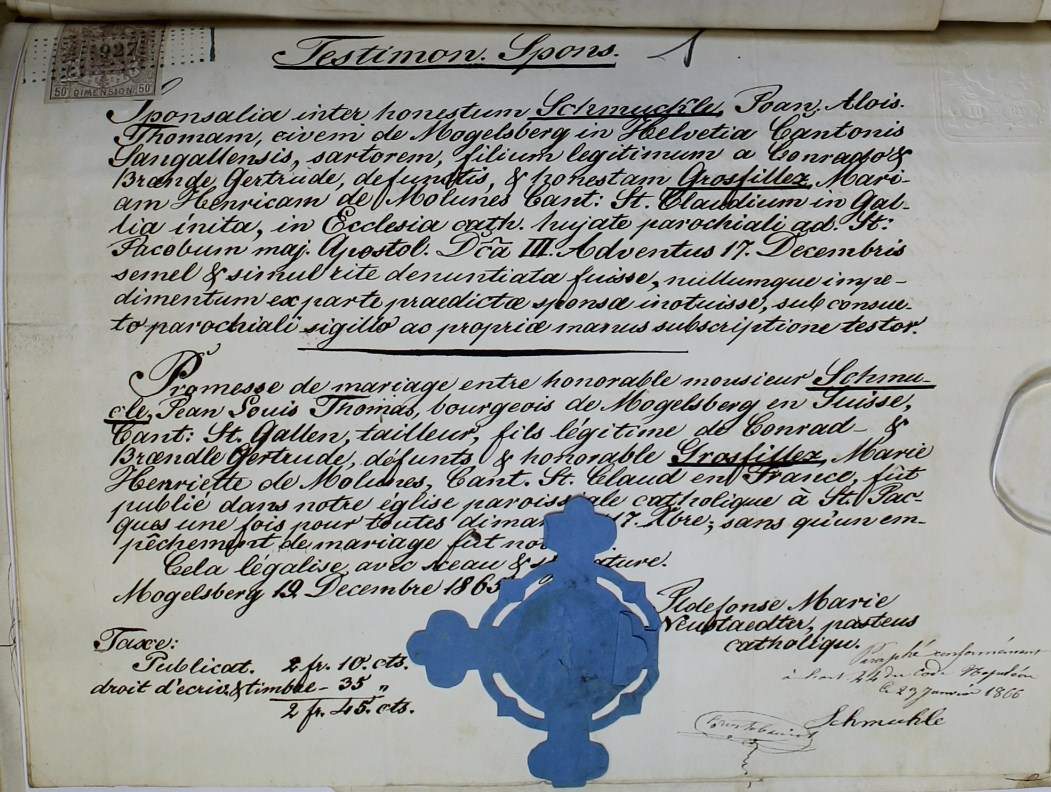 Testimon. Spons. 1
927
50 DIMENSION. 50
Sponsalia inter honestum Schmuckle, Joan. Alois.
Thomam, civem de Mogelsberg in Helvetia Cantonis
Sangallensis, sartorem, filium legitimum a Conrado &
Brænde Gertrude, defunctis, & honestam Grosfillez, Mari-
am Henricam de Molunes Cant: St. Claudium in Gal-
lia inita, in Ecclesia cath. hujate parochiali ad. St:
Jacobum maj. Apostol. Dca III. Adventus 17. Decembris
semel & simul rite denuntiata fuisse, nullumque impe-
dimentum ex parte praedictæ sponsæ inotuisse, sub consue-
to parochiali sigillo ac propriæ manus subscriptione testor.
Promesse de mariage entre honorable monsieur Schmu-
cle, Jean Louis Thomas, bourgeois de Mogelsberg en Suisse,
Cant: St. Gallen, tailleur, fils légitime de Conrad &
Brændle Gertrude, défunts & honorable Grosfillez, Marie
Henriette de Molunes, Cant. St. Claud en France, fût
publié dans notre église paroissiale catholique à St. Jac-
ques une fois pour toutes diman 17. Xbre; sans qu'un em-
pêchement de mariage fût no
Cela légalise avec sceau & signature.
Mogelsberg 19. Decembre 1865
Ildefonse Marie
Neustaedter, pasteus
catholiqu.
Taxe:
Publicat. 2 fr. 10. cts.
droit d'ecriv. & timbre - 35 "
2 fr. 45. cts.
Paraphé conformément
à l'art 44 du Code Napoléon
le 29 janvier 1866
Schmuhle